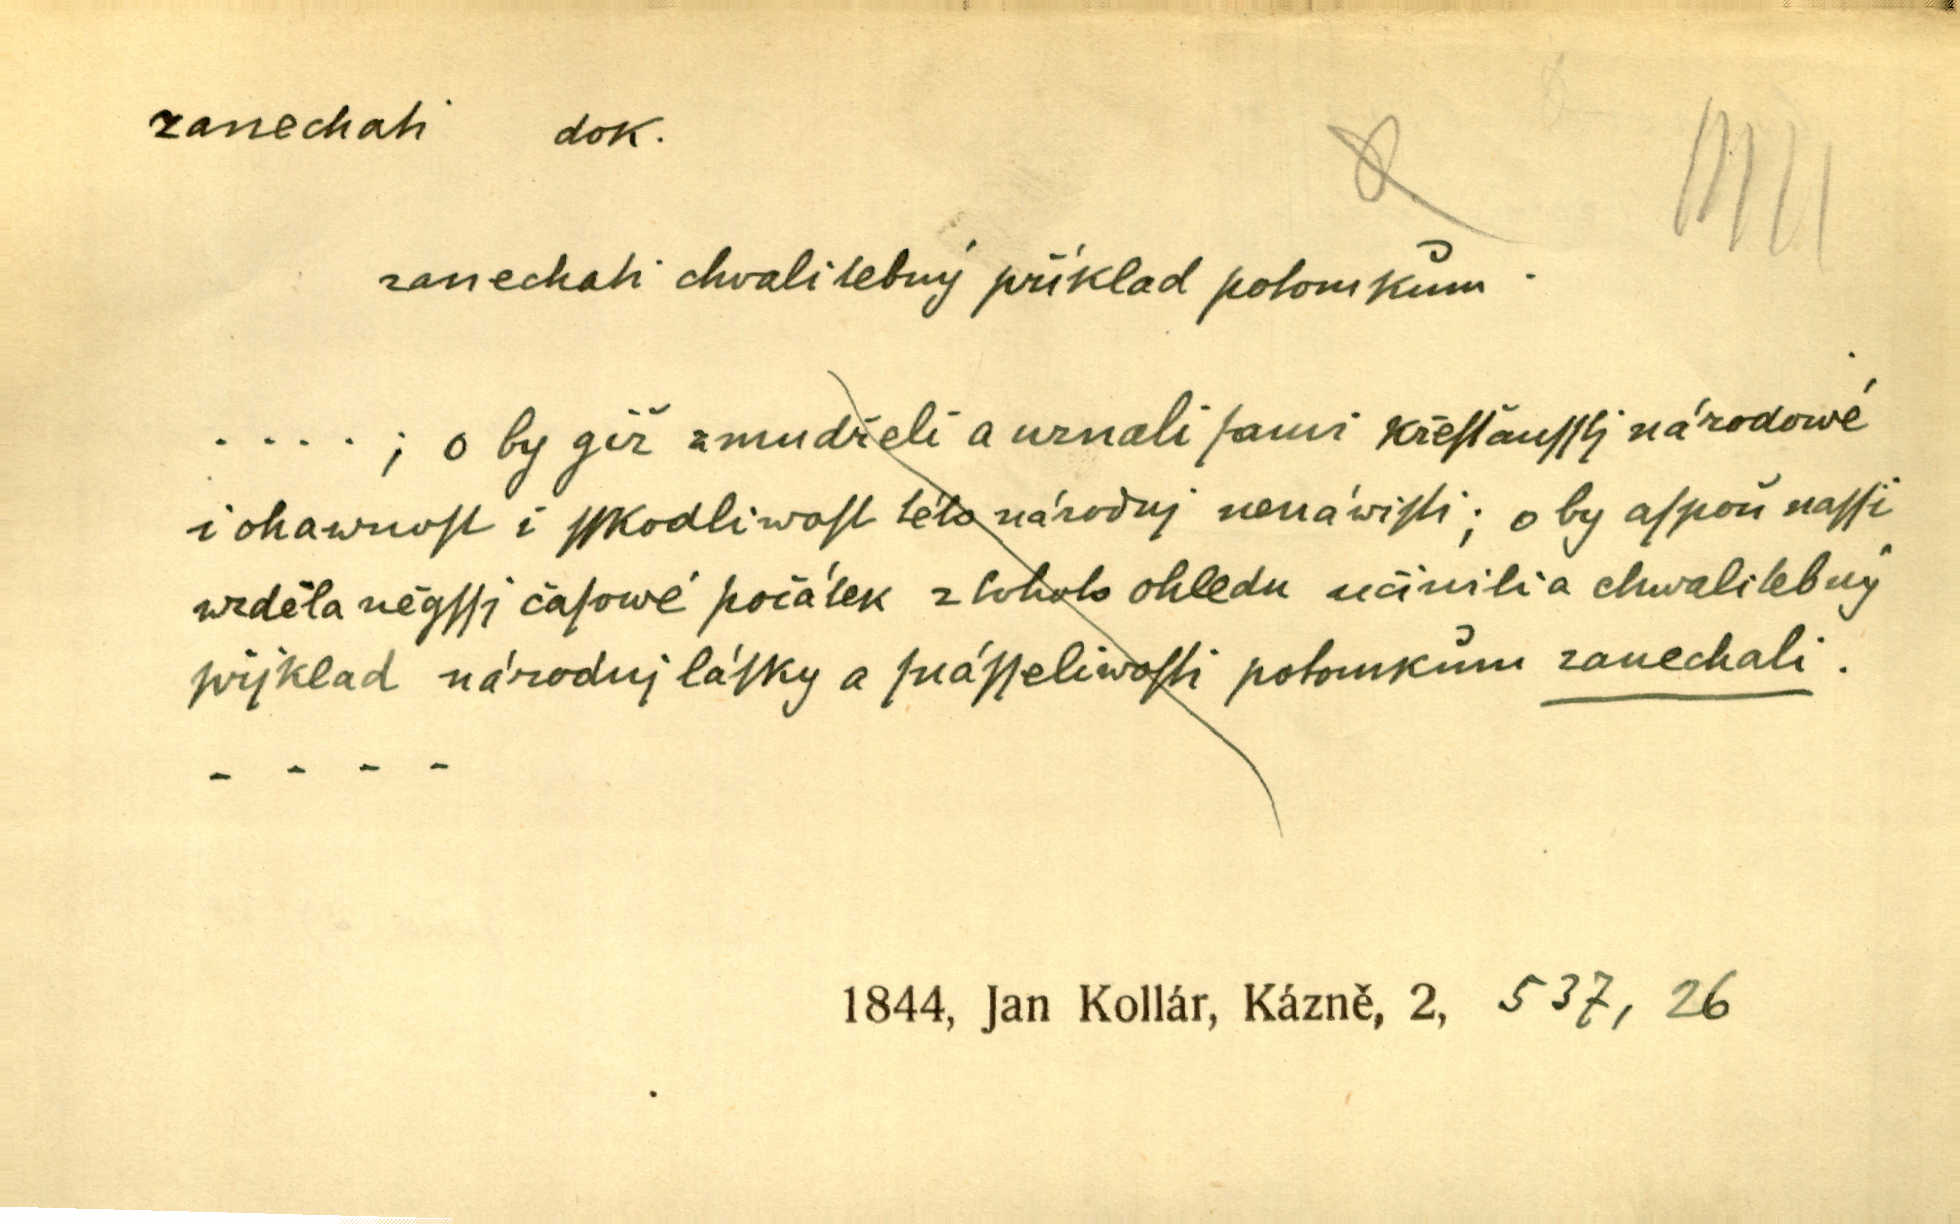 zanechati dok.
zanechati chvalitebný příklad potomkům.
. . . . ; o by giž zmudřeli a uznali ſami křeſťanſſtj národowé
i ohawnoſt i ſſkodliwoſt této národnj nenáwiſti; o by aſpoň naſſi
wzdělaněgſſj čaſowé počátek z tohoto ohledu učinili a chwalitebný
přjklad národnj láſky a ſnáſſeliwoſti potomkům zanechali.
- - - -
1844, Jan Kollár, Kázně, 2, 537, 26